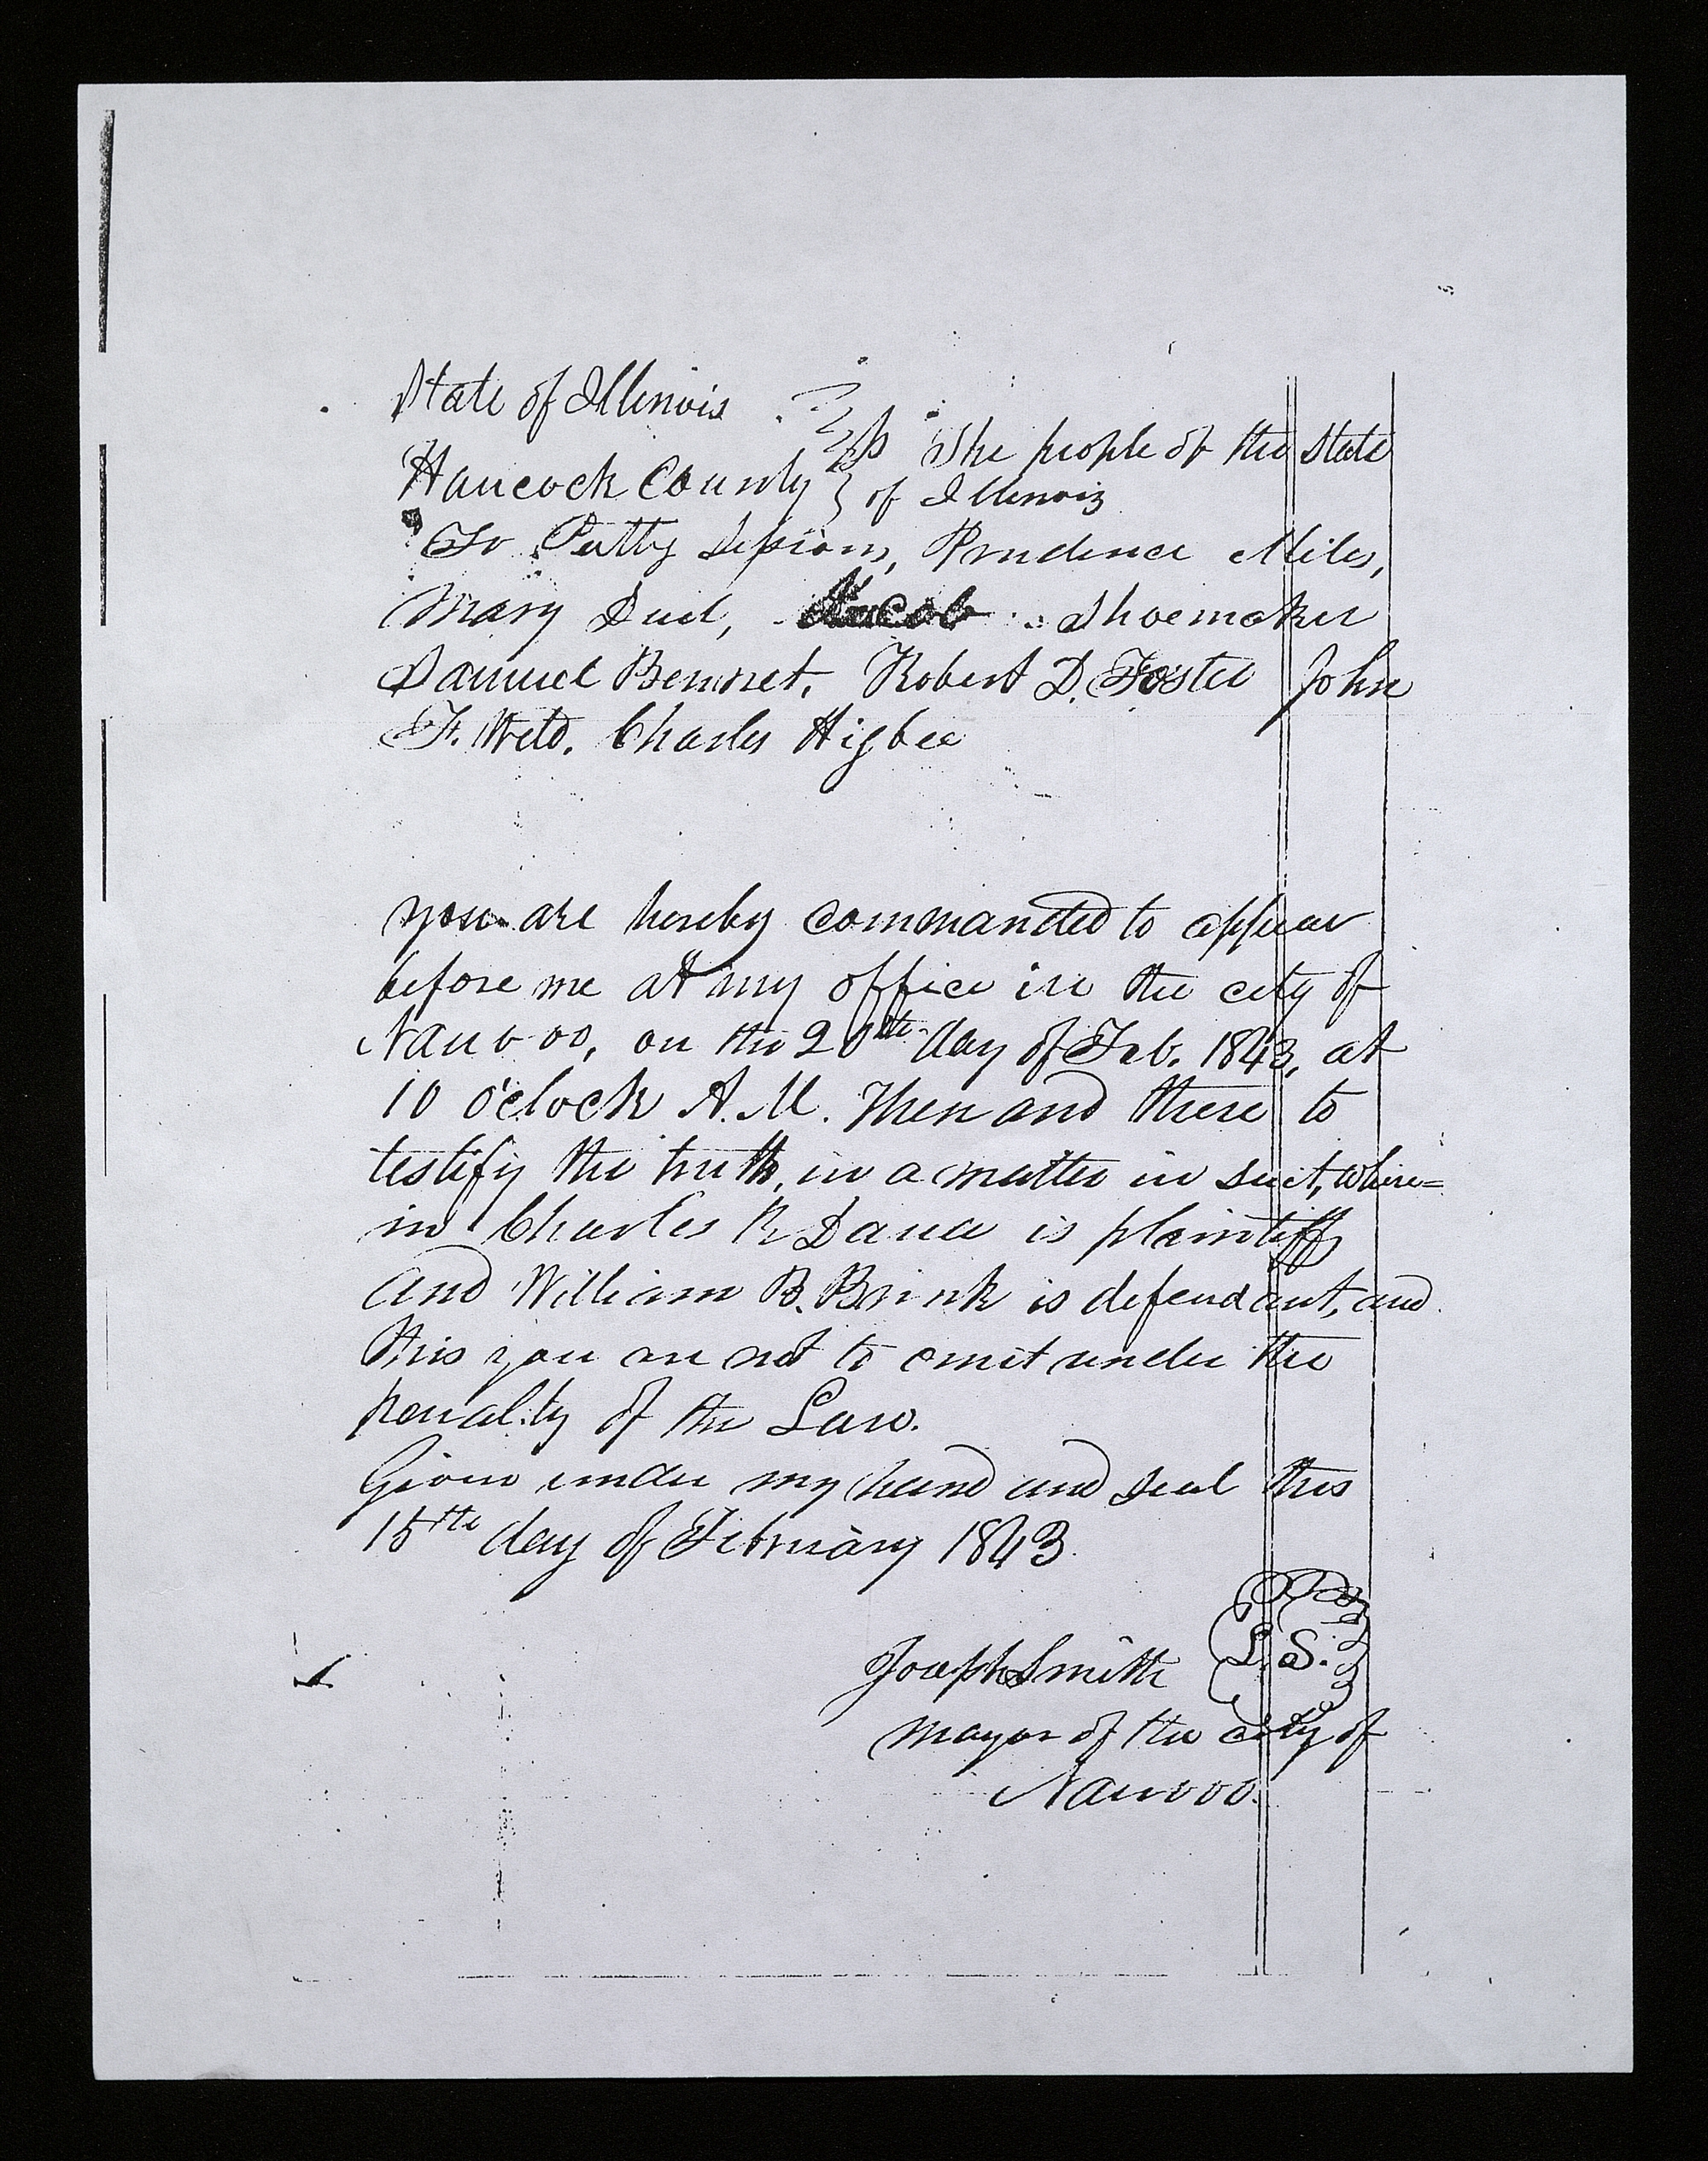 State of Illinois
Hancock County } ss The people of the State
of Illinois
To Patty Sessions, Prudence Miles,
Mary Duel, Jacob Shoemaker
Samuel Bennet, Robert D. Foster John
F. Weld, Charles Higbee
you are hereby commanded to appear
before me at my office in the city of
Nauvoo, on the 20th day of Feb. 1843, at
10 o'clock A.M. Then and there to
testify the truth, in a matter in suit, where=
in Charles R Dana is plaintiff
and William B. Brink is defendant, and
this you are not to omit under the
penality of the Law.
Given under my hand and seal this
15th day of February 1843.
Joseph Smith L. S.
mayor of the city of
Nauvoo.